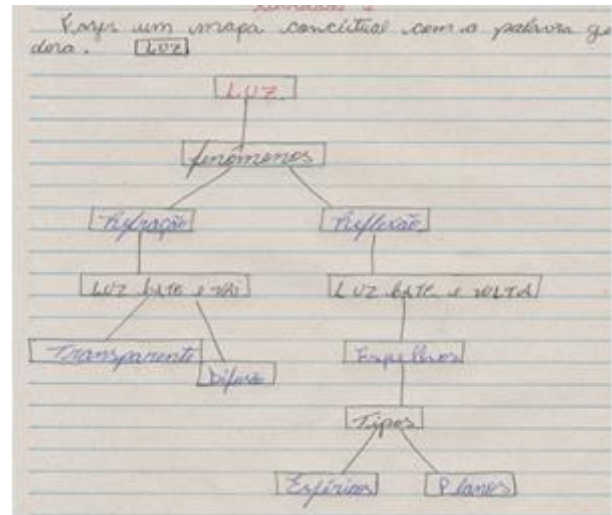 Fazer um mapa conceitual com a palavra ge
dora. LUZ
LUZ
fenômenos
Refração Reflexão
LUZ BATE e VAI LUZ BATE e VOLTA
Transparente Espelhos
Difusão
Tipos
Esféricos Planos